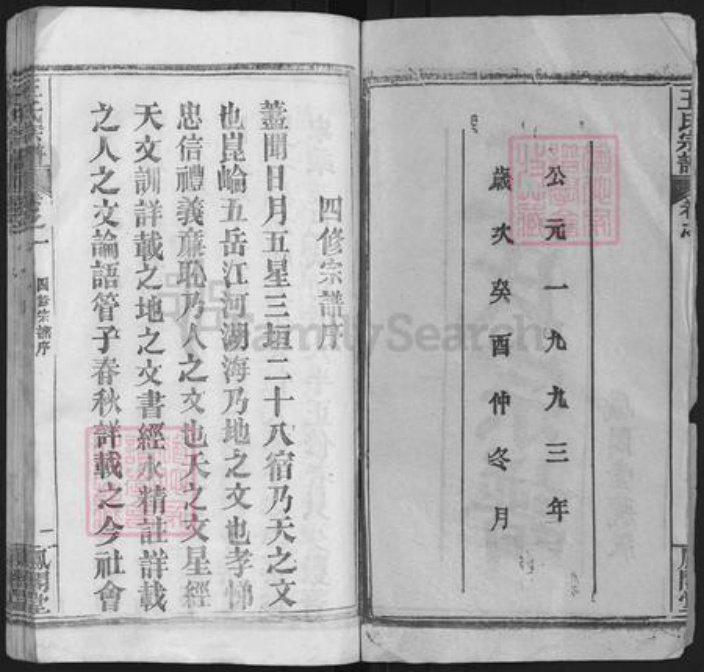 王氏宗譜
公元一九九三年
歲次癸酉仲冬月
四修宗譜序
蓋聞日月五星三垣二十八宿乃天之文
也崑崙五岳江河湖海乃地之文也孝悌
忠信禮義廉恥乃人之文也天之文星經
天文訓詳載之地之文書經水精註詳載
之人之文論語管子春秋詳載之今社會
王氏宗譜
卷之一
四修宗譜序
一
FamilySearch